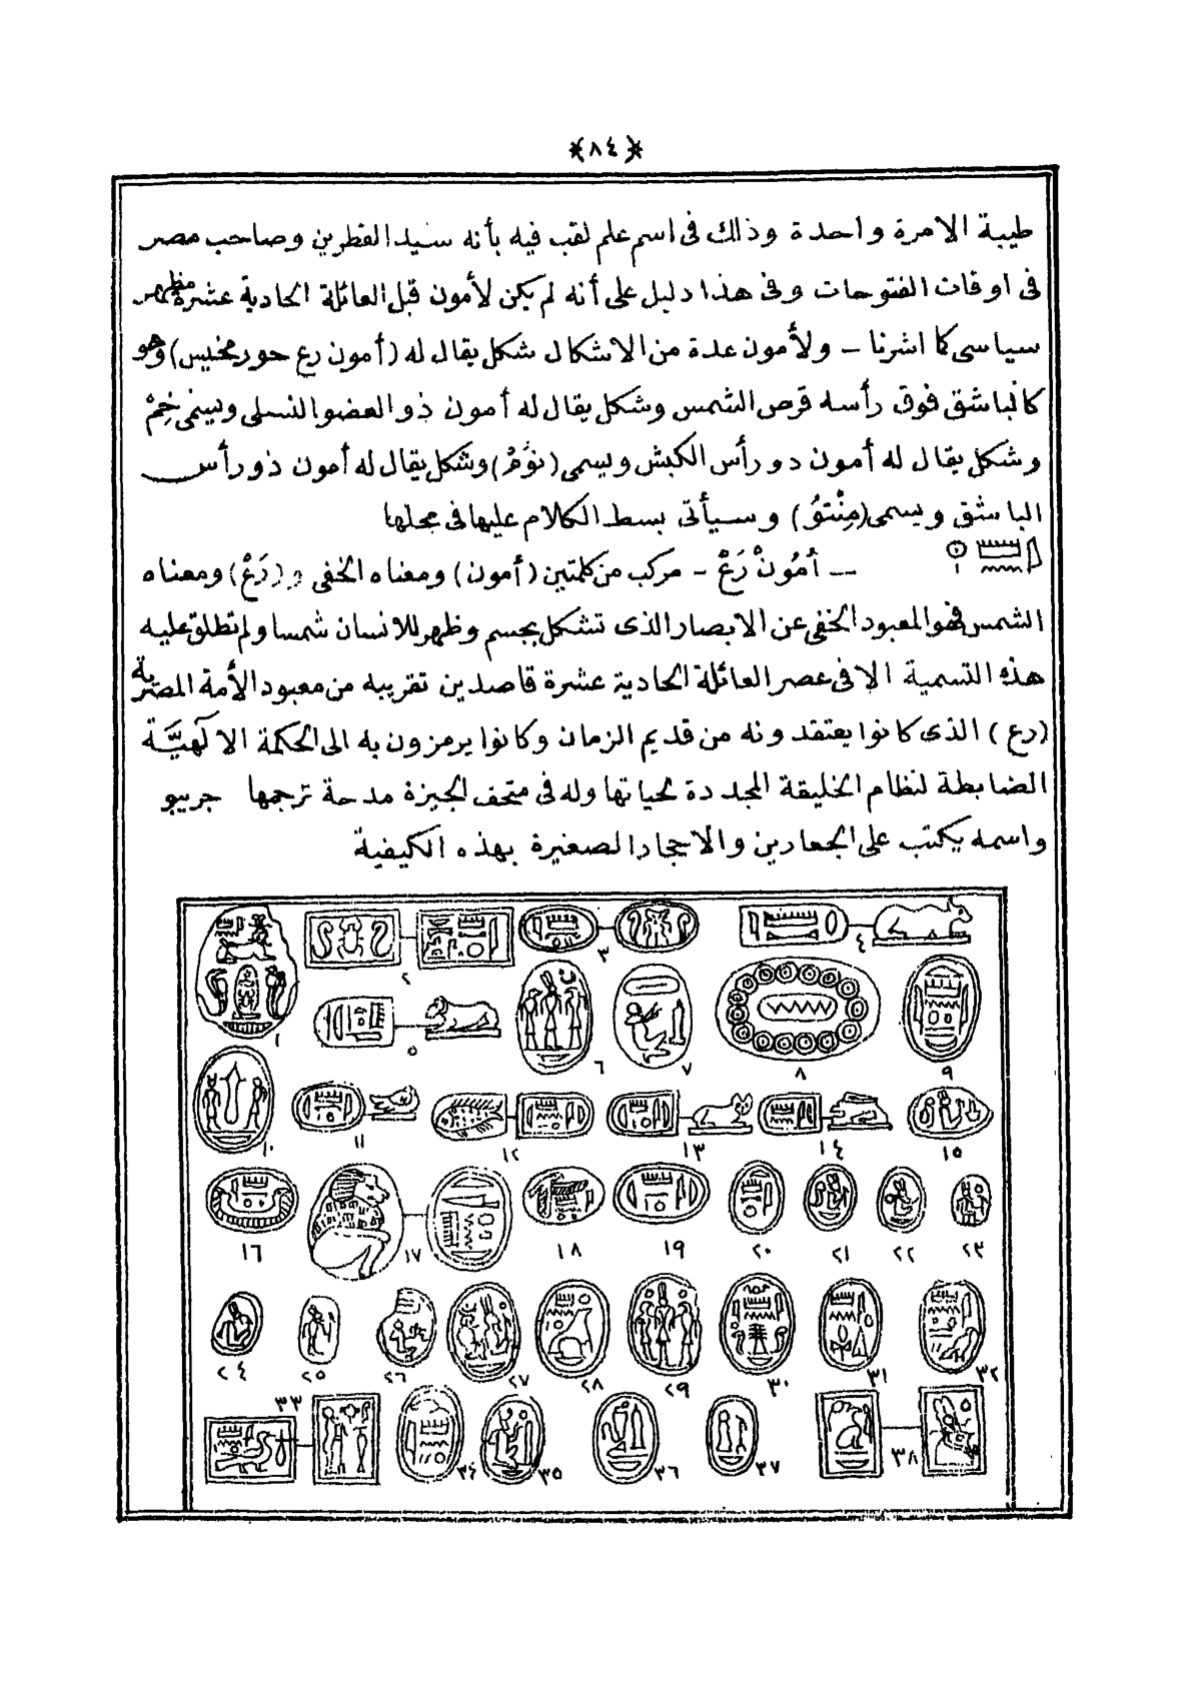 ﴿٨٤﴾
طيبة الامرة واحدة وذلك فى اسم علم لقب فيه بأنه سيد القطرين وصاحب مصر
فى اوقات الفتوحات وفى هذا دليل على أنه لم يكن لأمون قبل العائلة الحادية عشرة مظهر
سياسى كما اشرنا ـ ولأمون عدة من الاشكال شكل يقال له (أمون رع حور مخيس) وهو
كالباشق فوق رأسه قرص الشمس وشكل يقال له أمون ذو العضو النسلى ويسمى خِمْ
وشكل يقال له أمون دو رأس الكبش ويسمى (نوُمْ) وشكل يقال له أمون ذو رأس
الباشق ويسمى (مِنْتوُ) وسيأتى بسط الكلام عليها فى محلها
ـــ أمُونْ رَعْ ـ مركب من كلمتين (أمون) ومعناه الخفى و(رَعْ) ومعناه
الشمس فهو المعبود الخفى عن الابصار الذى تشكل بجسم وظهر للانسان شمسا ولم تطلق عليه
هذه التسمية الا فى عصر العائلة الحادية عشرة قاصدين تقريبه من معبود الأمة المصرية
(رع) الذى كانوا يعتقدونه من قديم الزمان وكانوا يرمزون به الى الحكمة الالٓهيَّة
الضابطة لنظام الخليقة المجددة لحياتها وله فى متحف الجيزة مدحة ترجمها جريبو
واسمه يكتب على الجعارين والاحجار الصغيرة بهذه الكيفية
١ ٢ ٣ ٤
٥ ٦ ٧ ٨ ٩
١٠ ١١ ١٢ ١٣ ١٤ ١٥
١٦ ١٧ ١٨ ١٩ ٢٠ ٢١ ٢٢ ٢٣
٢٤ ٢٥ ٢٦ ٢٧ ٢٨ ٢٩ ٣٠ ٣١ ٣٢
٣٣ ٣٤ ٣٥ ٣٦ ٣٧ ٣٨